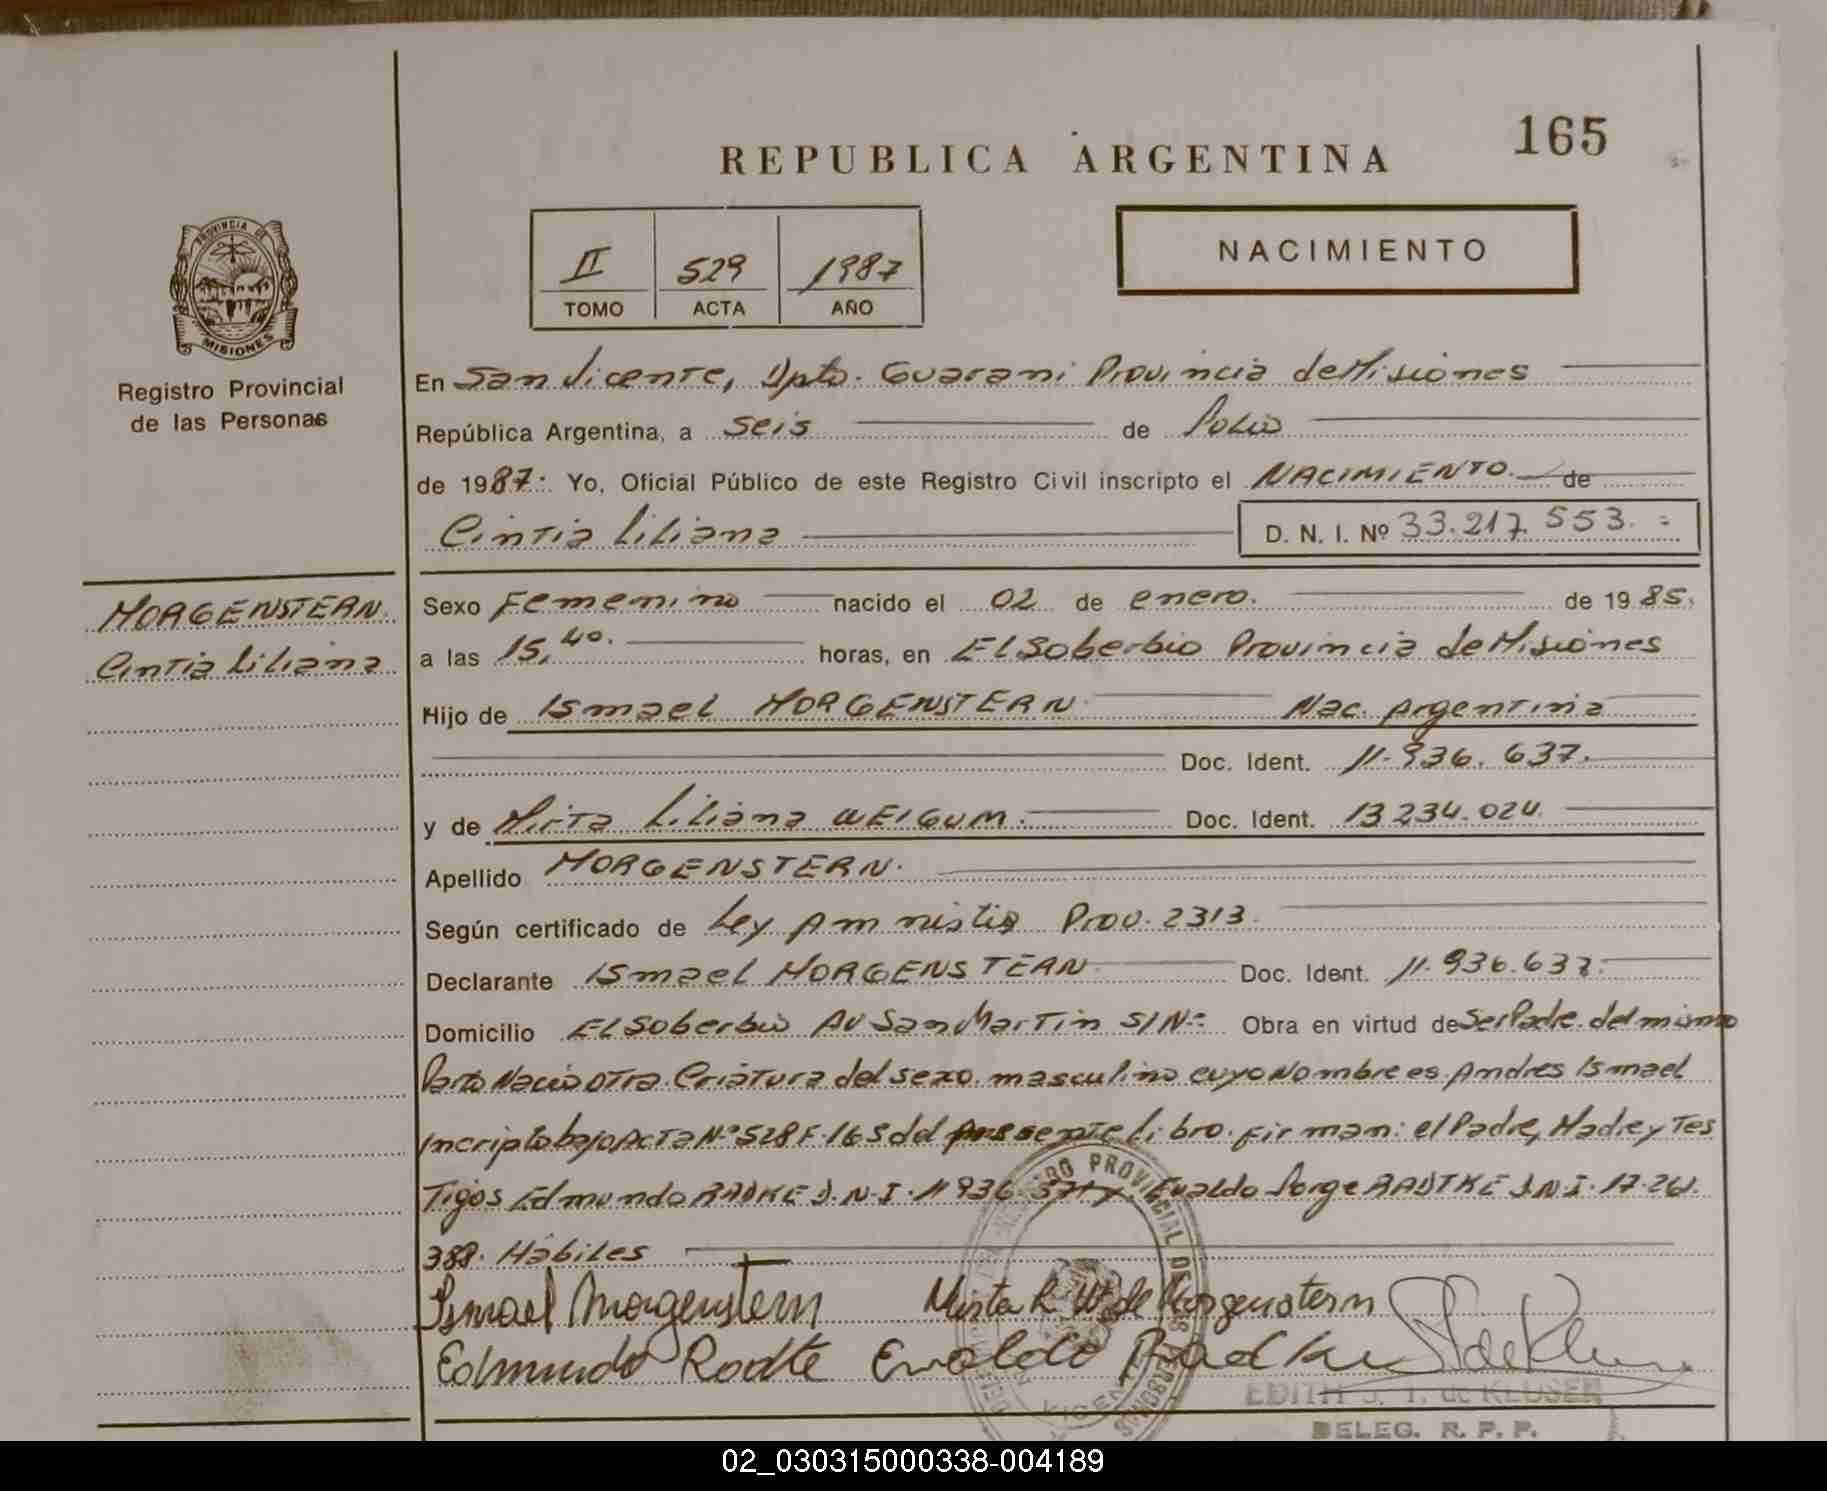 165
REPUBLICA ARGENTINA
II 529 1987
TOMO ACTA AÑO
NACIMIENTO
PROVINCIA DE
MISIONES
Registro Provincial
de las Personas
En San Vicente, Dpto. Guarani Provincia de Misiones
República Argentina, a seis de Julio
de 1987.- Yo, Oficial Público de este Registro Civil inscripto el NACIMIENTO. de
Cintia Liliana D. N. I. Nº 33.217.553.=
MORGENSTERN.
Cintia Liliana
Sexo Femenino nacido el 02 de enero. de 1985.
a las 15,40. horas, en El Soberbio Provincia de Misiones
Hijo de Ismael MORGENSTERN Nac. Argentina
Doc. Ident. 11.936.637.
y de Mirta Liliana WEIGUM. Doc. Ident. 13.234.024.
Apellido MORGENSTERN.
Según certificado de Ley Amnistia Prov. 2313.
Declarante Ismael MORGENSTERN Doc. Ident. 11.936.637.
Domicilio El Soberbio Av San Martin S/Nº Obra en virtud de Ser Padre. del mismo
Parto Nacio otra Criatura del sexo masculino cuyo Nombre es Andres Ismael
Incripto bajo Acta Nº 528 F. 165 del presente libro. Firman: el Padre, Madre y Tes
Tigos Edmundo RADKE D.N.I. 11936. Evaldo Jorge RADTKE D.N.I. 17.261.
388. Hábiles
Ismael Morgenstern Mirta L. W. de Morgenstern
Edmundo Radke Evaldo Radke
EDITH J. T. de KLUSER
DELEG. R. P. P.
02_030315000338-004189